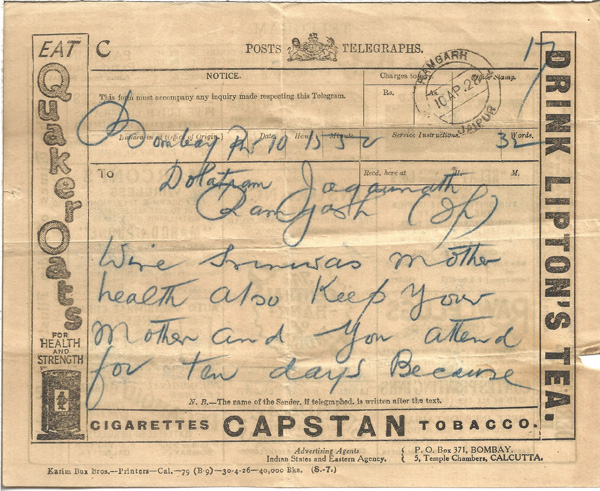 EAT
Quaker Oats
FOR
HEALTH
AND
STRENGTH
C
POSTS TELEGRAPHS.
17
NOTICE.
Charges to
Stamp.
This form must accompany any inquiry made respecting this Telegram.
Rs.
As.
RAMGARH
10 AP. 28
JAIPUR
(Office of Origin.) Date. Hour. Minute. Service Instructions. Words.
Bombay 10 15 52 32
TO
Recd. here at H. M.
Dolatram Jagannath
Ramgarh (Jp)
Wire Sriniwas mother
health also Keep your
Mother and you attend
for ten days Because
N. B.—The name of the Sender, if telegraphed, is written after the text.
CIGARETTES CAPSTAN TOBACCO.
DRINK LIPTON'S TEA.
Advertising Agents
Indian States and Eastern Agency.
P. O. Box 371, BOMBAY.
5, Temple Chambers, CALCUTTA.
Karim Bux Bros.—Printers—Cal.—79 (B-9)—30-4-26—40,000 Bks. (S.-7.)